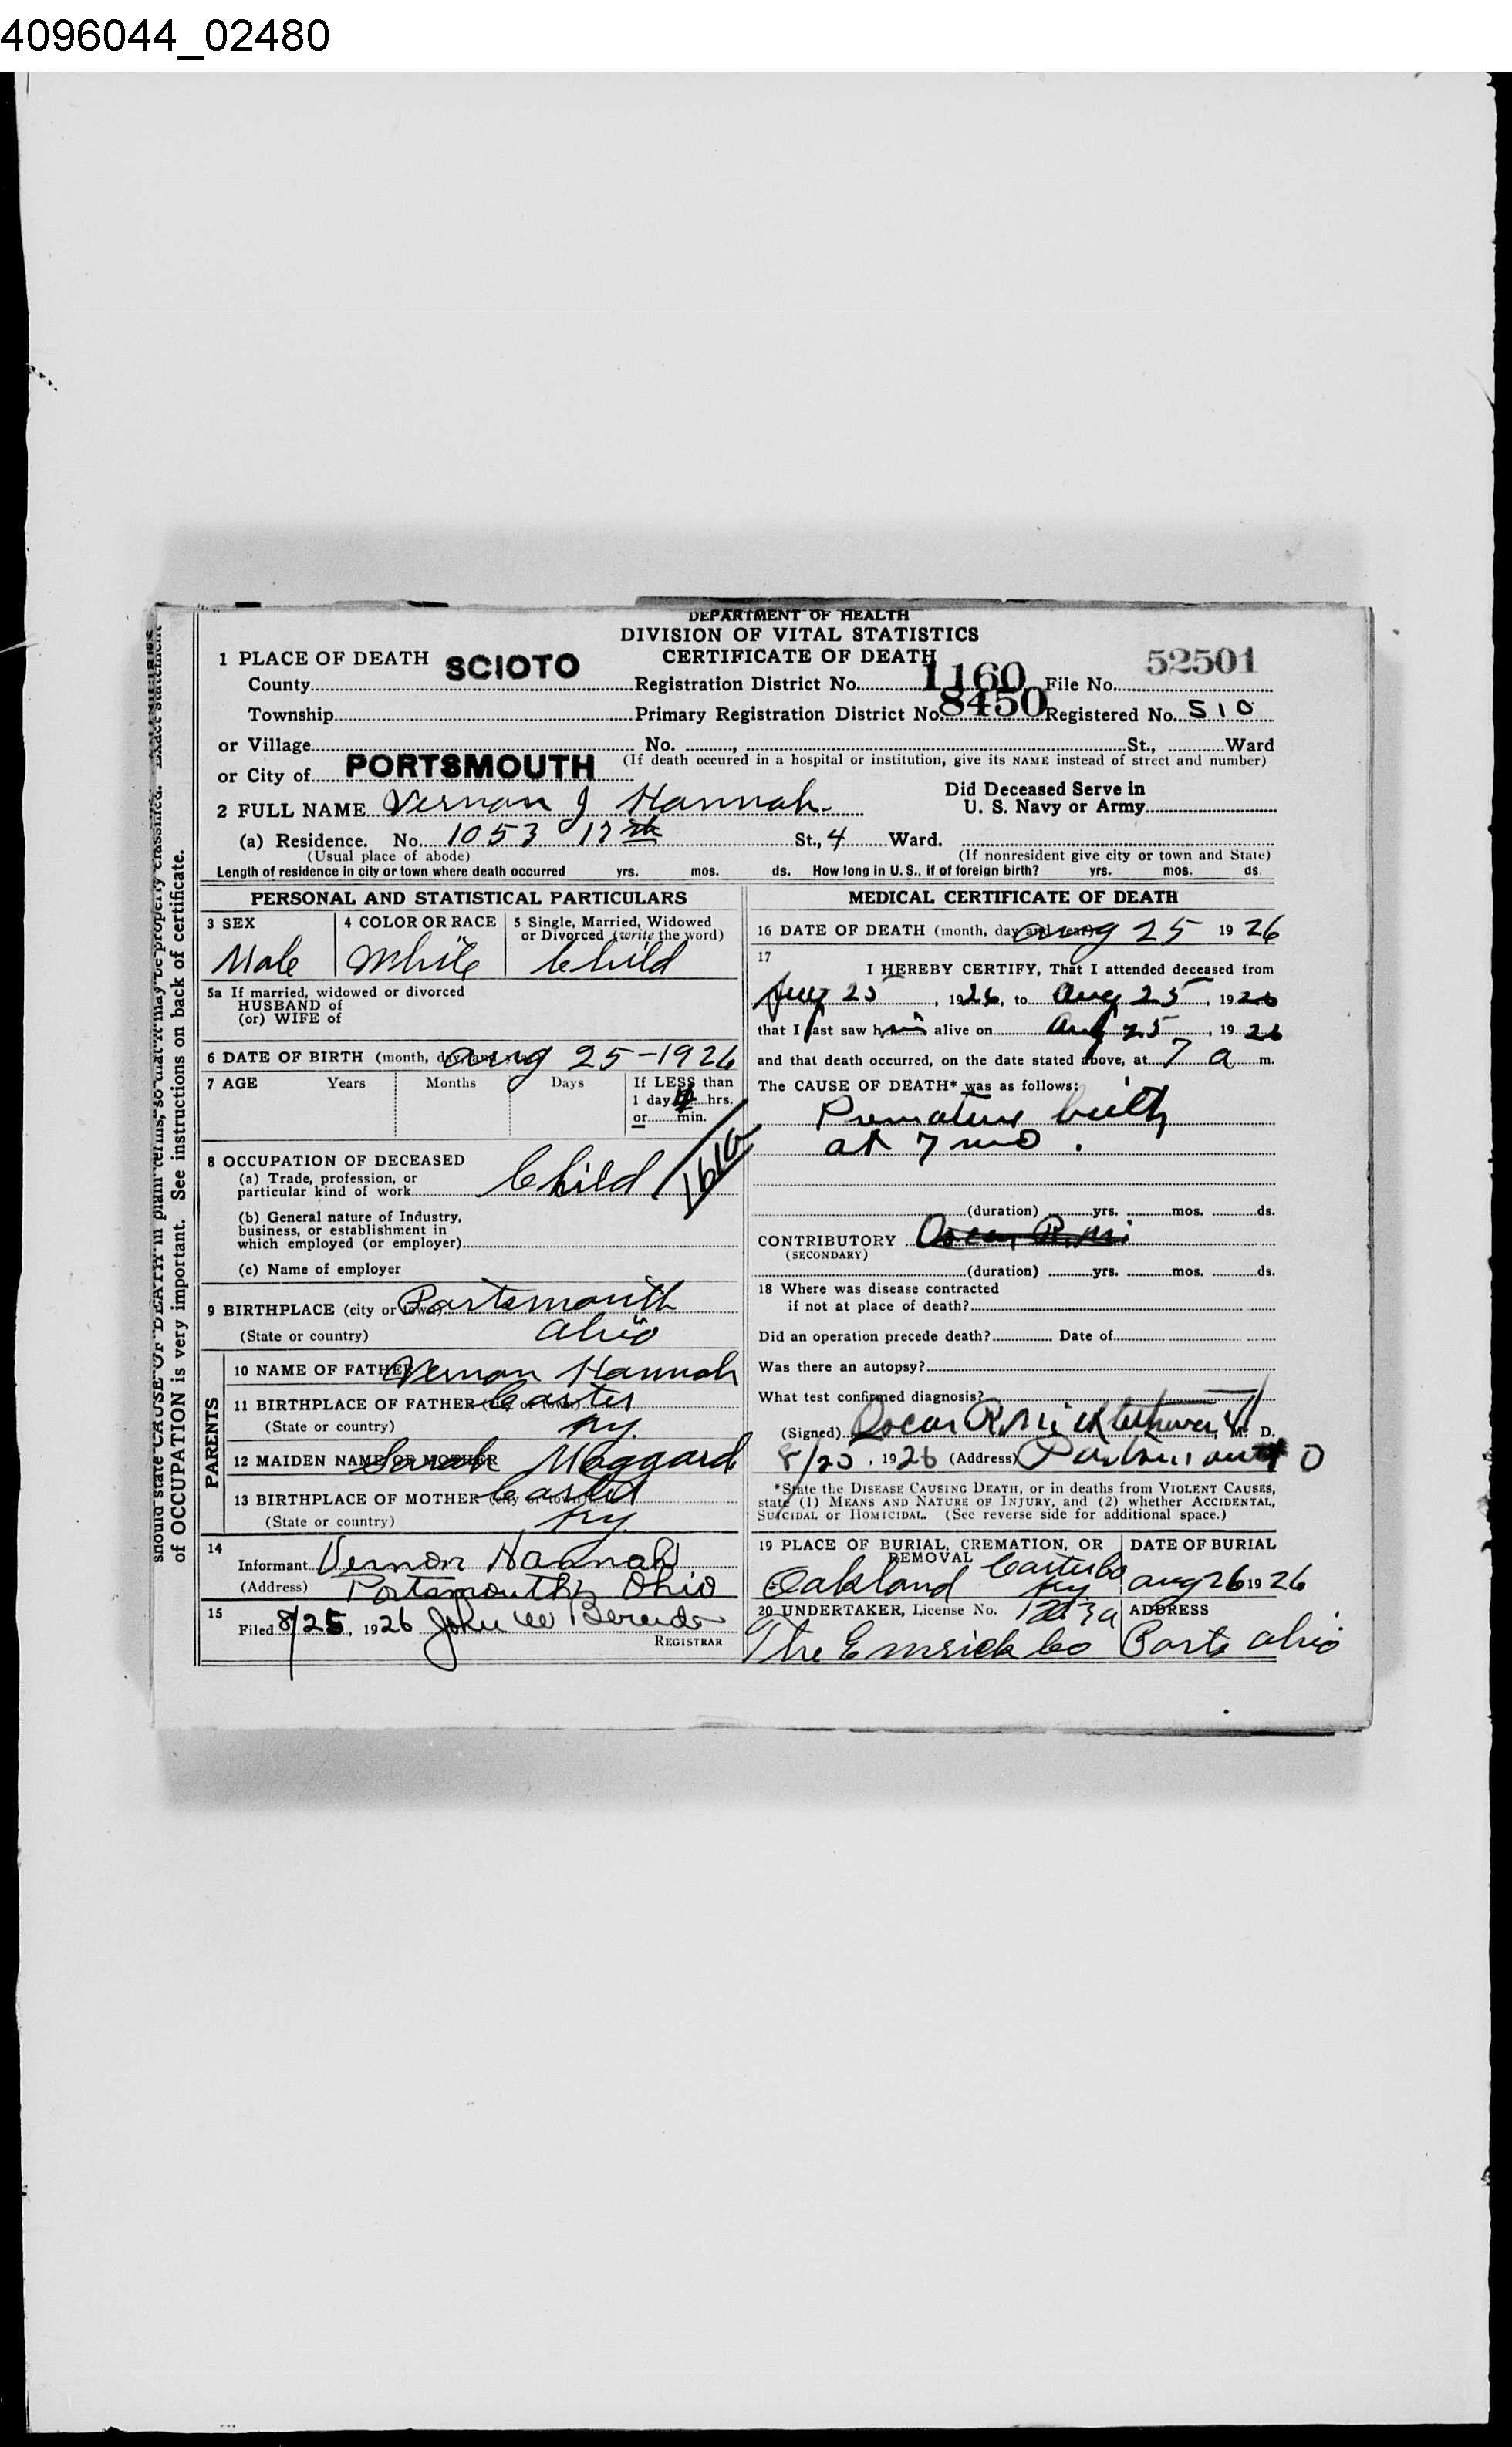 4096044_02480
DEPARTMENT OF HEALTH
DIVISION OF VITAL STATISTICS
CERTIFICATE OF DEATH
1 PLACE OF DEATH
County SCIOTO Registration District No. 1160 File No. 52501
Township Primary Registration District No. 8450 Registered No. 510
or Village No. , St., Ward
or City of PORTSMOUTH (If death occured in a hospital or institution, give its NAME instead of street and number)
2 FULL NAME Vernon J Hannah Did Deceased Serve in U. S. Navy or Army
(a) Residence. No. 1053 17th St., 4 Ward.
(Usual place of abode) (If nonresident give city or town and State)
Length of residence in city or town where death occurred yrs. mos. ds. How long in U. S., if of foreign birth? yrs. mos. ds.
PERSONAL AND STATISTICAL PARTICULARS
3 SEX 4 COLOR OR RACE 5 Single, Married, Widowed
or Divorced (write the word)
Male White Child
5a If married, widowed or divorced
HUSBAND of
(or) WIFE of
6 DATE OF BIRTH (month, day and year) Aug 25-1926
7 AGE Years Months Days If LESS than
1 day hrs.
or min.
8 OCCUPATION OF DECEASED
(a) Trade, profession, or
particular kind of work Child
(b) General nature of Industry,
business, or establishment in
which employed (or employer)
(c) Name of employer
9 BIRTHPLACE (city or town) Portsmouth
(State or country) Ohio
PARENTS
10 NAME OF FATHER Vernon Hannah
11 BIRTHPLACE OF FATHER (city or town) Carter
(State or country) Ky.
12 MAIDEN NAME OF MOTHER Sarah Maggard
13 BIRTHPLACE OF MOTHER (city or town) Carter
(State or country) Ky.
14
Informant Vernon Hannah
(Address) Portsmouth, Ohio
15
Filed 8/25, 1926 John W
REGISTRAR
MEDICAL CERTIFICATE OF DEATH
16 DATE OF DEATH (month, day and year) Aug 25 1926
17
I HEREBY CERTIFY, That I attended deceased from
Aug 25, 1926, to Aug 25, 1926
that I last saw him alive on Aug 25, 19 26
and that death occurred, on the date stated above, at 7 a m.
The CAUSE OF DEATH* was as follows:
Premature birth
at 7 mo.
(duration) yrs. mos. ds.
CONTRIBUTORY Oscar R. Mi
(SECONDARY)
(duration) yrs. mos. ds.
18 Where was disease contracted
if not at place of death?
Did an operation precede death? Date of
Was there an autopsy?
What test confirmed diagnosis?
(Signed) Oscar R. Micklethwait, M. D.
8/25, 1926 (Address) Portsmouth O
*State the DISEASE CAUSING DEATH, or in deaths from VIOLENT CAUSES,
state (1) MEANS AND NATURE OF INJURY, and (2) whether ACCIDENTAL,
SUICIDAL or HOMICIDAL. (See reverse side for additional space.)
19 PLACE OF BURIAL, CREMATION, OR REMOVAL DATE OF BURIAL
Oakland Carter Co Ky Aug 26 1926
20 UNDERTAKER, License No. ADDRESS
The Emrick Co Ports Ohio
should state CAUSE OF DEATH in plain terms, so that it may be properly classified. Exact statement
of OCCUPATION is very important. See instructions on back of certificate.